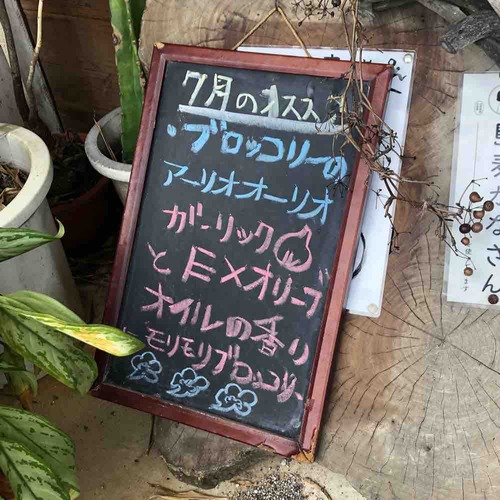 7月のオススメ
・ブロッコリーの
アーリオオーリオ
ガーリック
とEXオリーブ
オイルの香り
モリモリブロッコリー
なさん